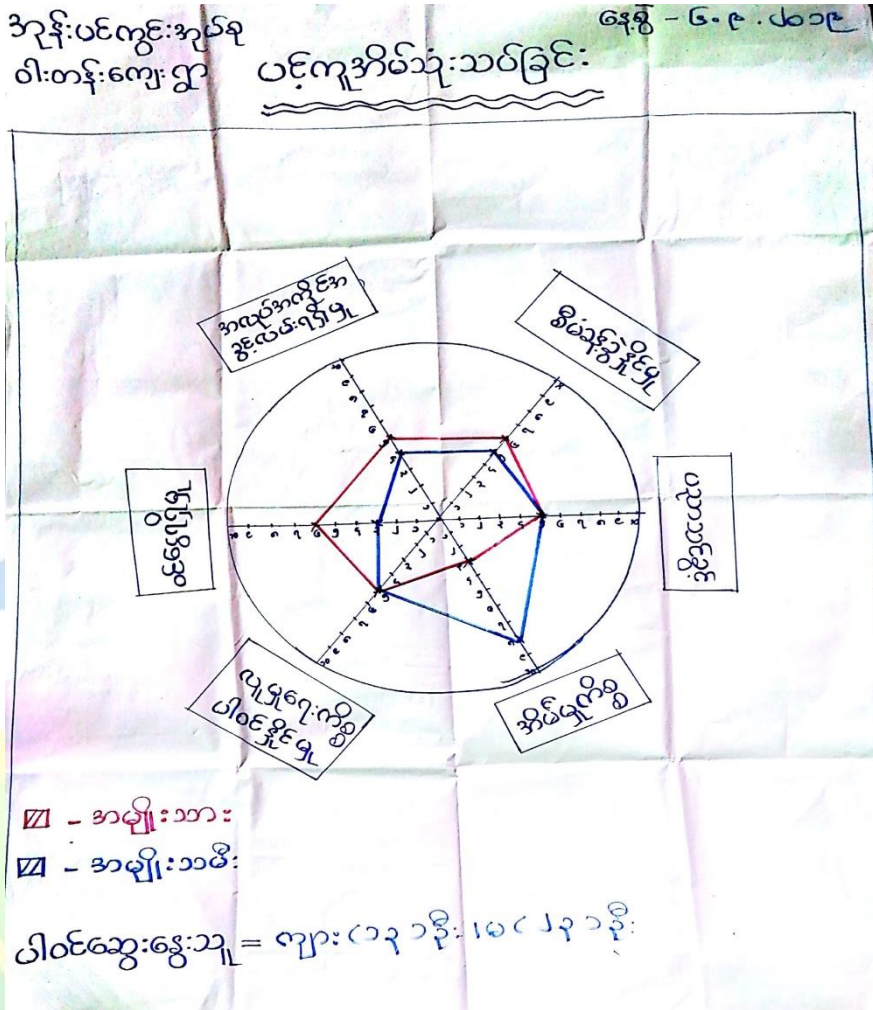 အုန်းပင်ကွင်းအုပ်စု
ဝါးတန်းကျေးရွာ
နေ့စွဲ - ၆.၉.၂၀၁၉
ပင့်ကူအိမ်သုံးသပ်ခြင်း
အလုပ်အကိုင်အ
ခွင့်လမ်းရရှိမှု
စီမံခန့်ခွဲနိုင်မှု
ဝင်ငွေရရှိမှု
ပညာရေး
လူမှုရေးကိစ္စ
ပါဝင်နိုင်မှု
အိမ်မှုကိစ္စ
- အမျိုးသား
- အမျိုးသမီး
ပါဝင်ဆွေးနွေးသူ = ကျား (၁၃) ဦး ၊ မ (၂၃) ဦး